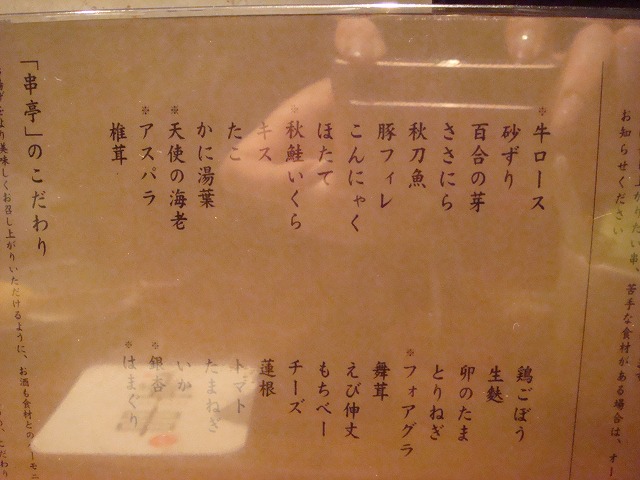 上がりたい串、苦手な食材がある場合は、オー
お知らせください
※牛ロース
砂ずり
百合の芽
ささにら
秋刀魚
豚フィレ
こんにゃく
ほたて
※秋鮭いくら
キス
たこ
かに湯葉
※天使の海老
※アスパラ
椎茸
鶏ごぼう
生麩
卯のたま
とりねぎ
※フォアグラ
舞茸
えび伸丈
もちベー
チーズ
蓮根
トマト
たまねぎ
いか
※銀杏
※はまぐり
「串亭」のこだわり
より美味しくお召し上がりいただけるように、お酒も食材とのハーモニ